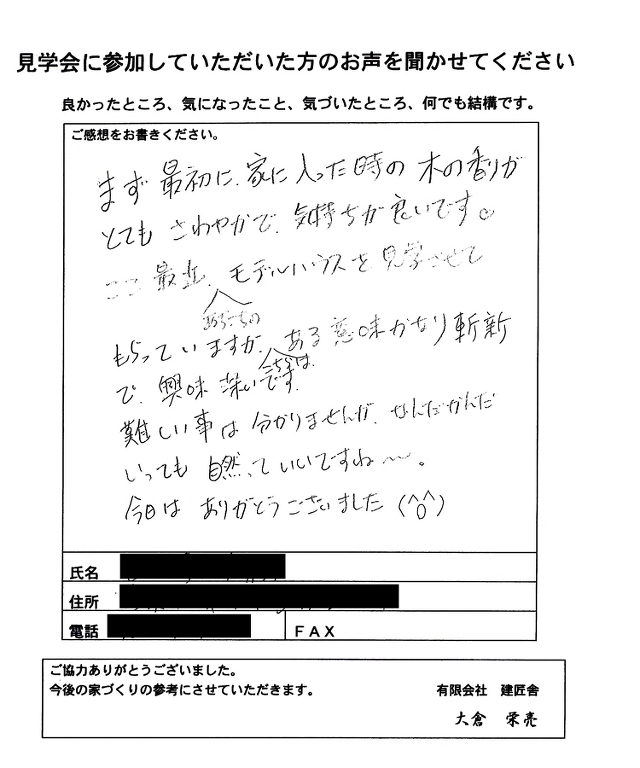 見学会に参加していただいた方のお声を聞かせてください
良かったところ、気になったこと、気づいたところ、何でも結構です。
ご感想をお書きください。
まず最初に、家に入った時の木の香りが
とてもさわやかで、気持ちが良いです
ここ最近、モデルハウスを見学させて
あちこちの
もらっていますが、ある意味かなり斬新
こちらは
で、興味深いです。
難しい事は分かりませんが、なんだかんだ
いっても自然っていいですね〜。
今日はありがとうございました(^O^)
氏名
住所
電話 FAX
ご協力ありがとうございました。
今後の家づくりの参考にさせていただきます。 有限会社 建匠舎
大倉 栄亮